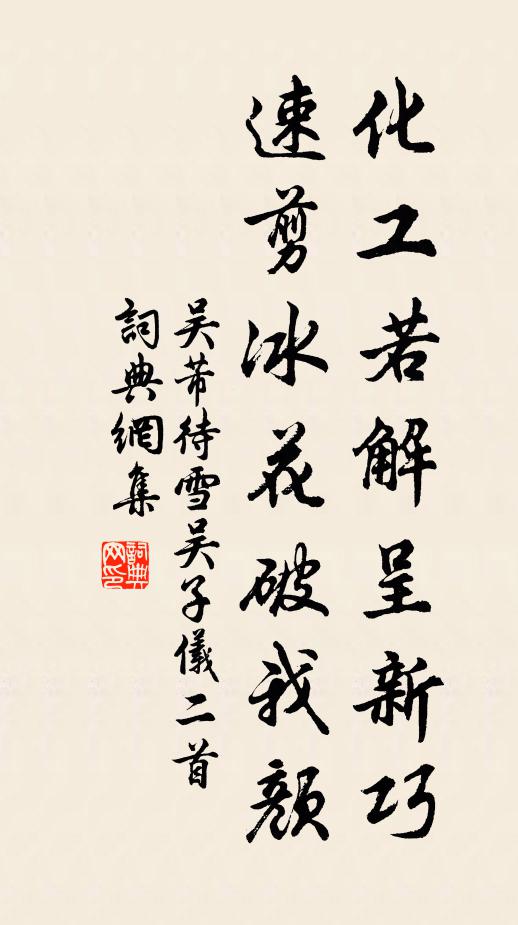 化工若解呈新巧
速剪冰花破我顏
吴芾待雪吴子儀二首
詞典網集
詞典網印